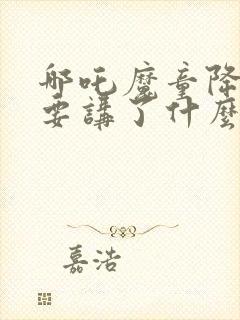 哪吒魔童降
要講了什麼
嘉浩